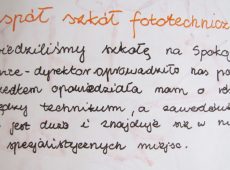 espół szkół fototechnicz
iedziliśmy szkołę na Spoka
ice-dyrektor oprowadziło nas po
opowiedziała nam o
technikum, a zawodów
jest dużo i znajduje się w
specjalistycznych miejsc.